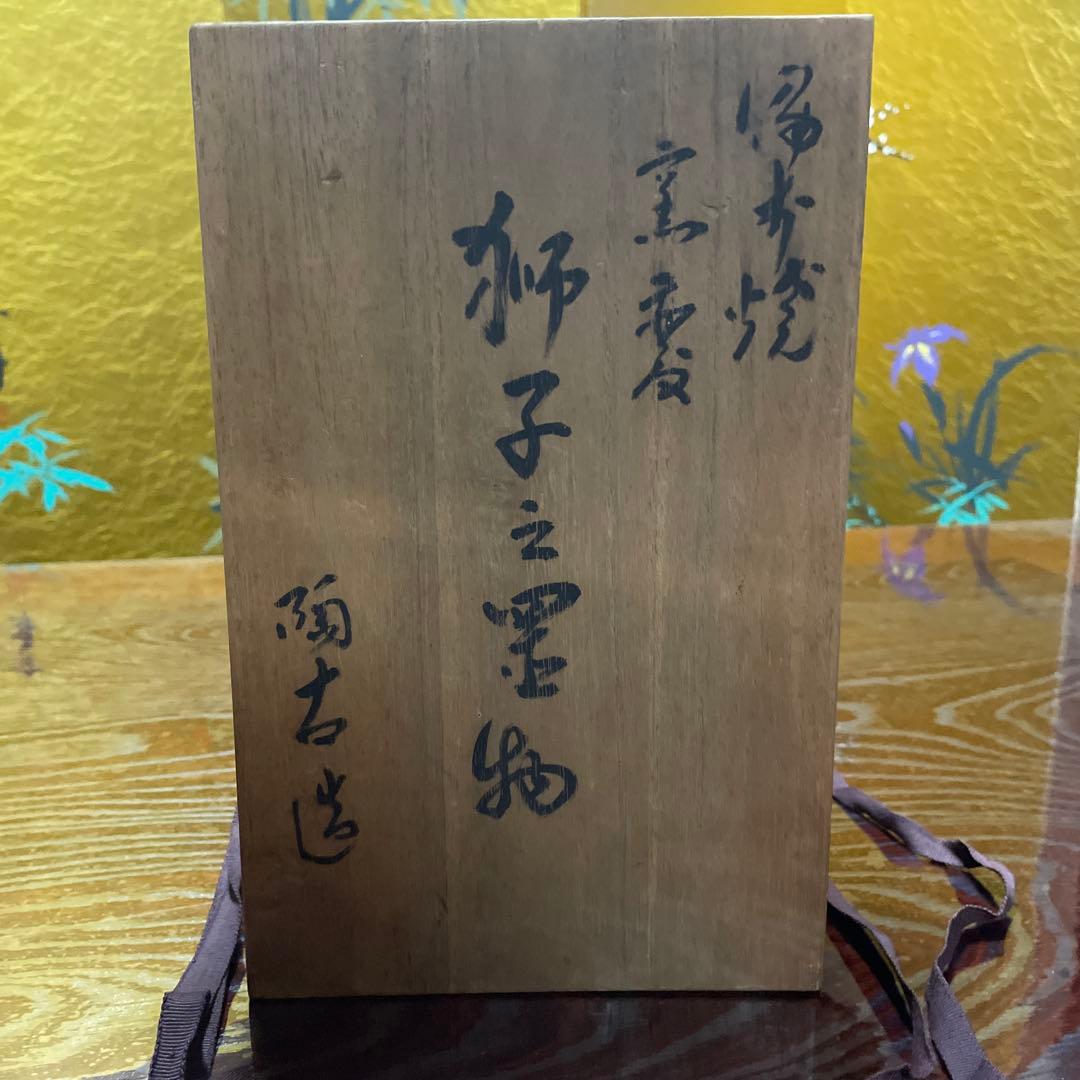 備前焼
窯変
獅子之置物
陶古造